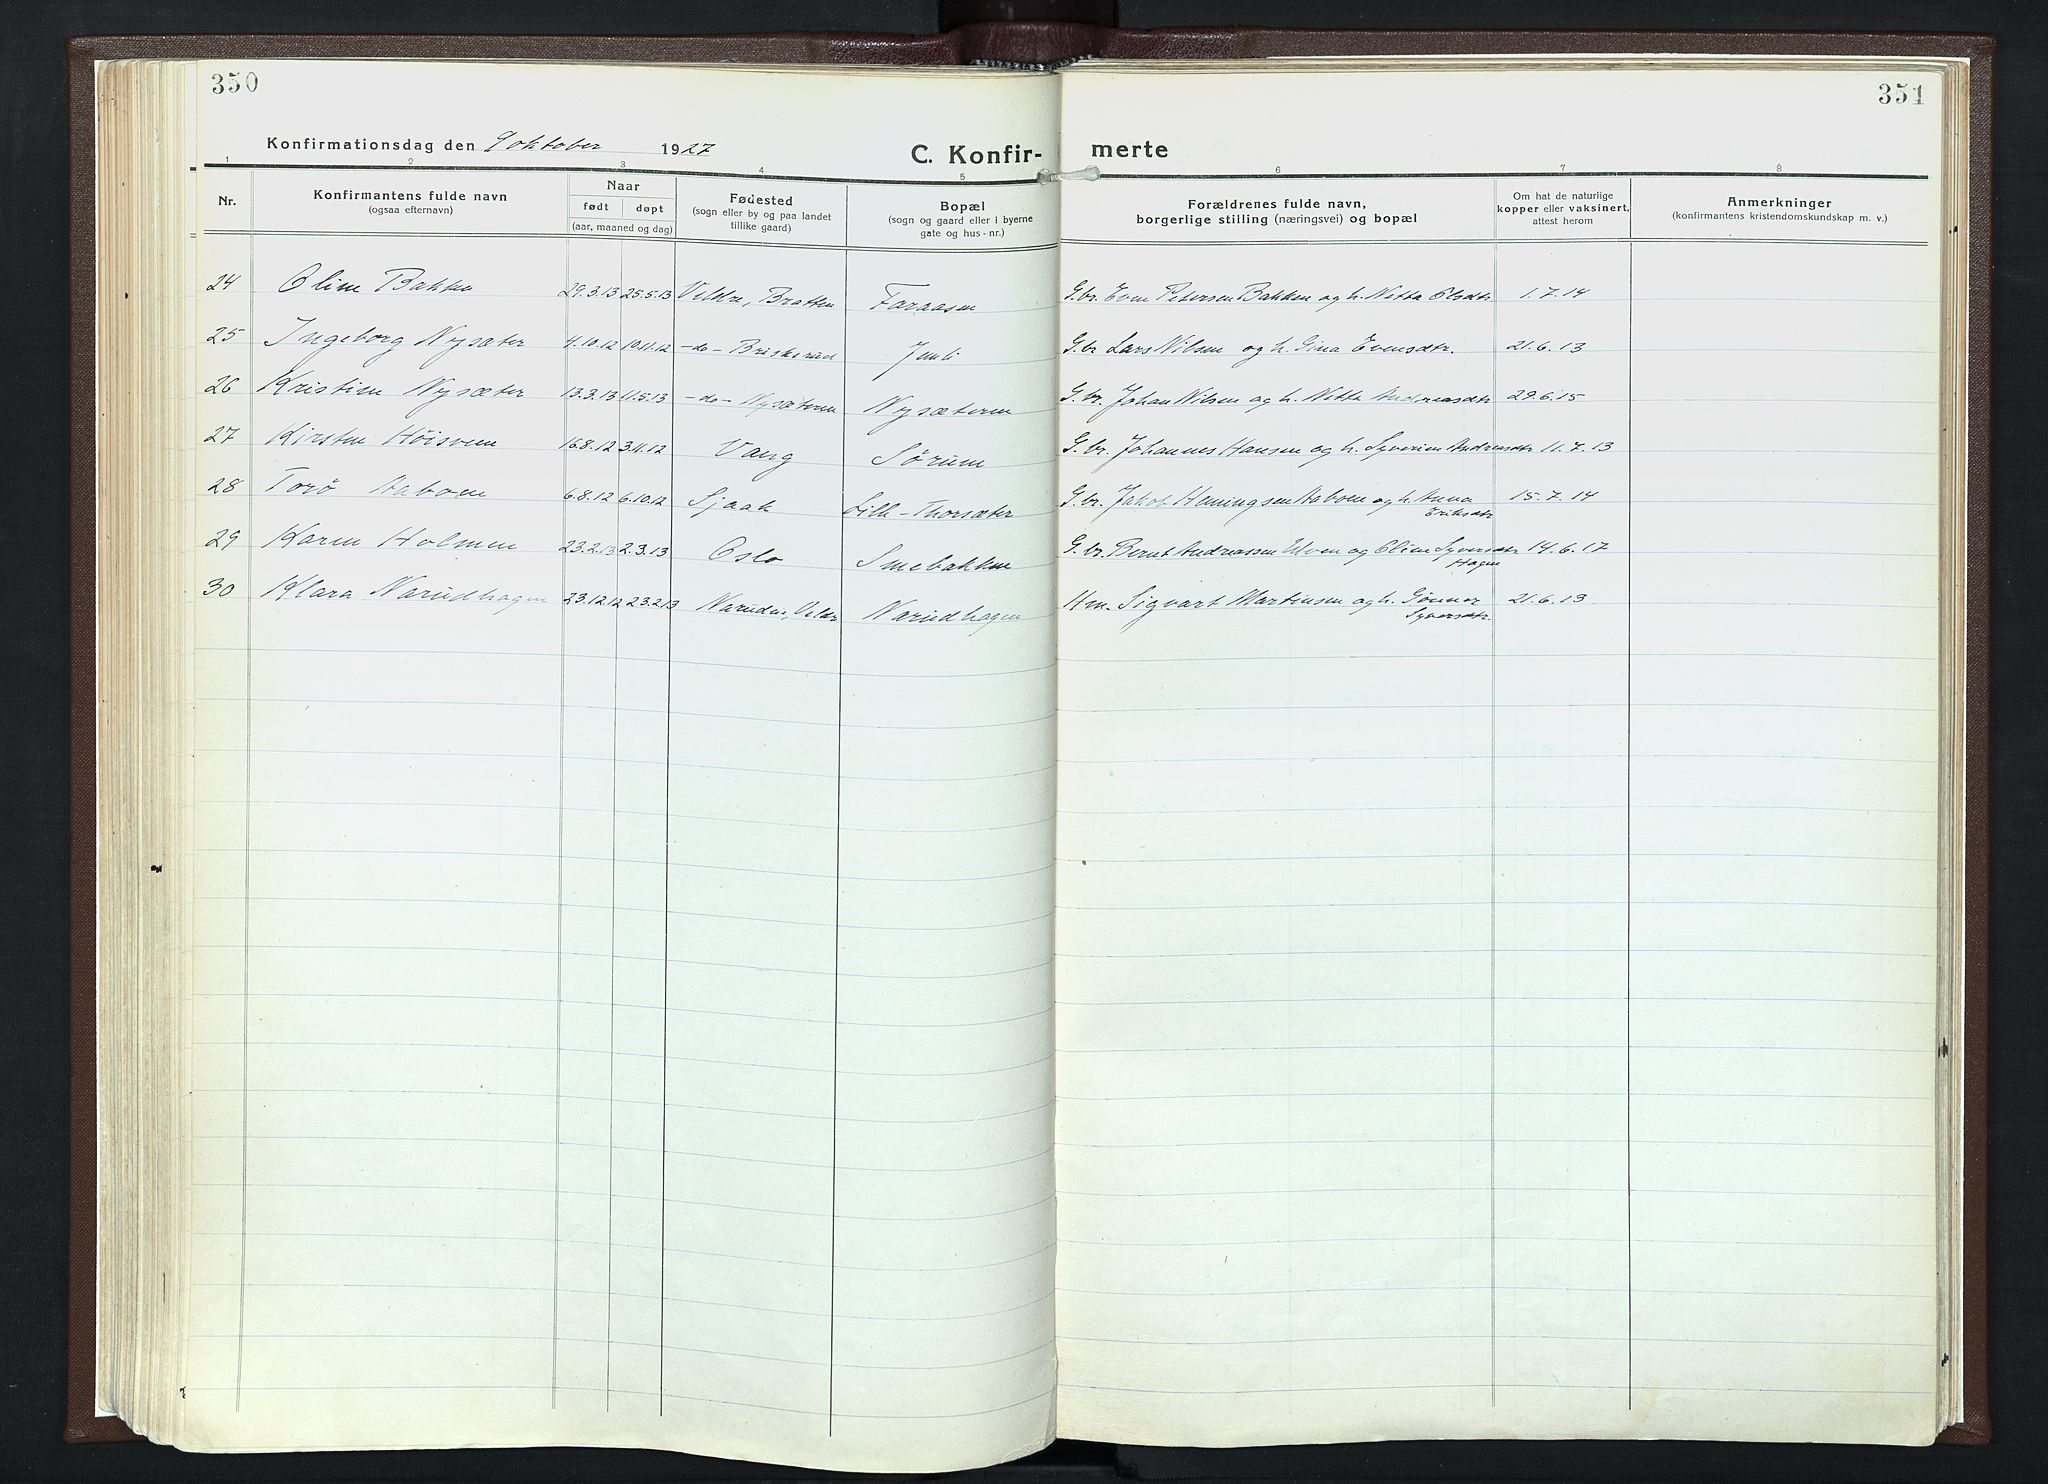 350
351
Konfirmationsdag den 9 oktober 1927
C. Konfir- merte
1 2 3 4 5 6 7 8
Nr.
Konfirmantens fulde navn
(ogsaa efternavn)
Naar
født døpt
(aar, maaned og dag)
Fødested
(sogn eller by og paa landet
tillike gaard)
Bopæl
(sogn og gaard eller i byerne
gate og hus-nr.)
Forældrenes fulde navn,
borgerlige stilling (næringsvei) og bopæl
Om hat de naturlige
kopper eller vaksinert,
attest herom
Anmerkninger
(konfirmantens kristendomskundskap m. v.)
24 Oline Bakken 29.3.13 25.5.13 Veldre, Bratten Faraasen G.br. Even Petersen Bakken og h. Netta Olsdtr. 1.7.14
25 Ingeborg Nysæter 4.10.12 10.11.12 -do- Briskerud Imli G.br Lars Nilsen og h. Gina Evensdtr. 21.6.13
26 Kristine Nysæter 13.3.13 11.5.13 -do- Nysæteren Nysæteren G.br. Johan Nilsen og h. Netta Andreasdtr 29.6.15
27 Kirsten Høisveen 16.8.12 3.11.12 Vang Sørum G.br. Johannes Hansen og h. Syverine Andreasdtr 11.7.13
28 Torø Aaboen 6.8.12 6.10.12 Sjaak Lille-Thorsæter G.br. Jakob Hemingsen Aaboen og h. Anna 15.7.14
Eriksdtr
29 Karen Holmen 23.2.13 2.3.13 Oslo Smebakken G.br. Bernt Andreassen Ulven og Oline Syversdtr 14.6.17
Hagen
30 Klara Narudhagen 23.12.12 23.2.13 Naruden, Veldre Narudhagen Hm. Sigvart Martinsen og h. Gunnor 21.6.13
Syversdtr.